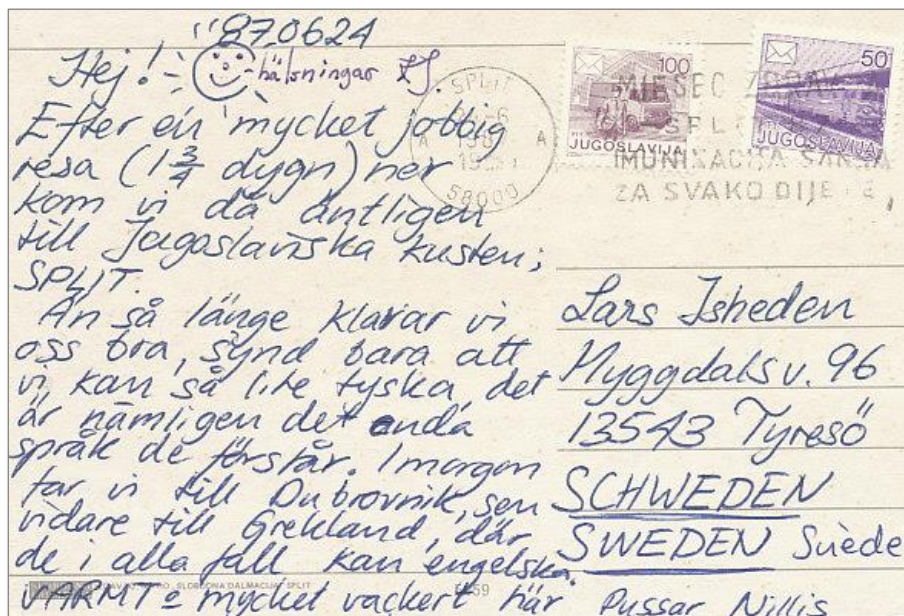 870624
Hej! hälsningar
Efter en mycket jobbig
resa (1 3/4 dygn) ner
kom vi då äntligen
till Jugoslaviska kusten;
SPLIT.
Än så länge klarar vi
oss bra, synd bara att
vi kan så lite tyska, det
är nämligen det enda
språk de förstår. Imorgon
far vi till Dubrovnik, sen
vidare till Grekland, där
de i alla fall kan engelska.
VARMT o mycket vackert här
Pussar Nillis
SPLIT
A 1987 A
58000
100
JUGOSLAVIJA
50
JUGOSLAVIJA
MJESEC
SPLIT
IMUNIZACIJA
ZA SVAKO DIJETE
Lars Isheden
Myggdalsv. 96
13543 Tyresö
SCHWEDEN
SWEDEN Suède
SLOBODNA DALMACIJA SPLIT